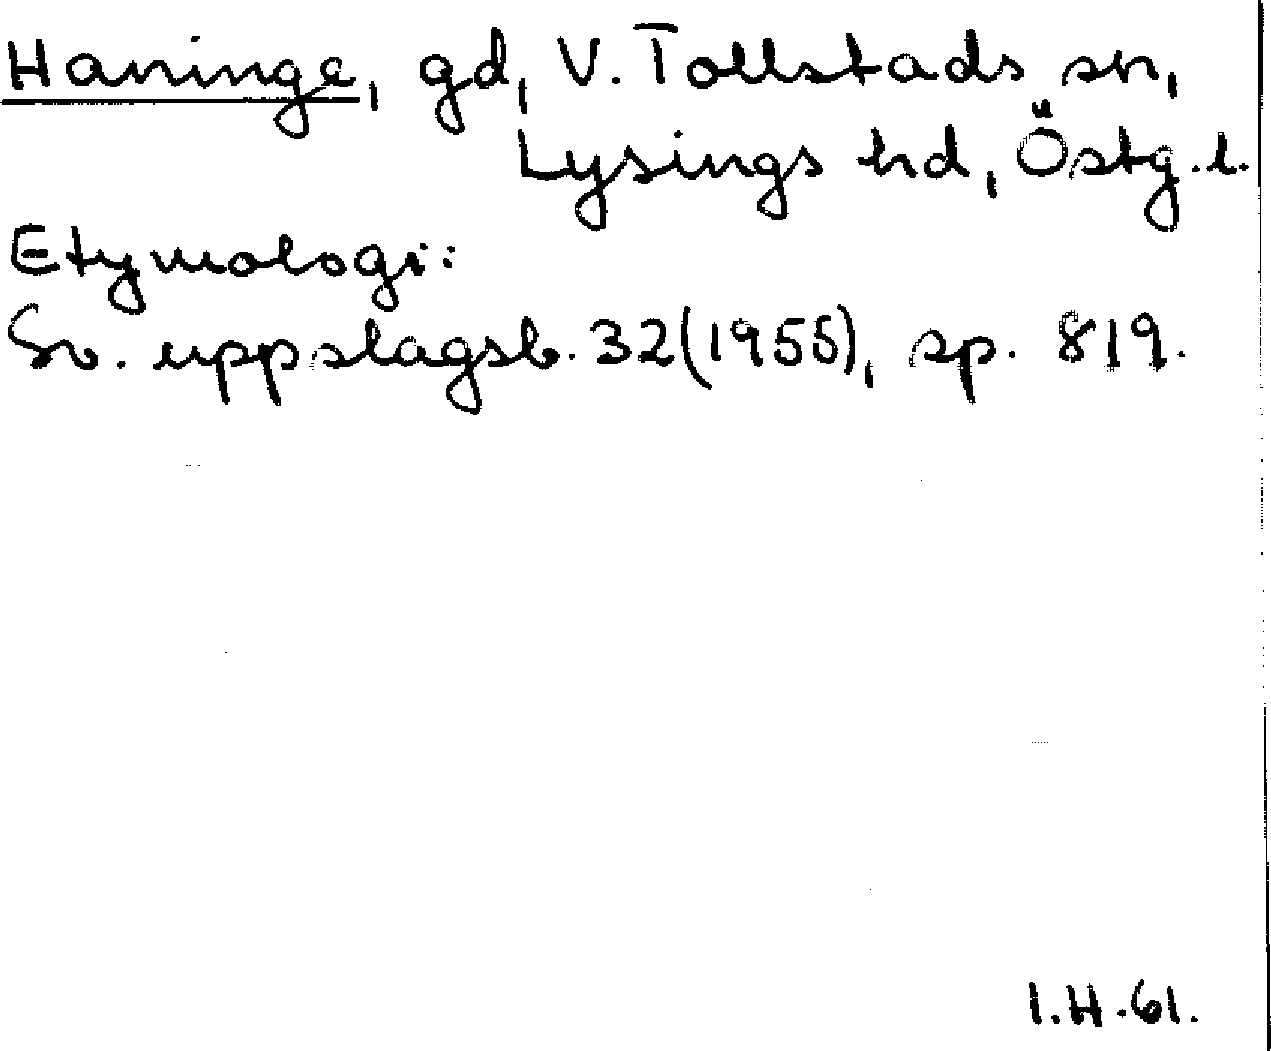 Haninge, gd, V. Tollstads sn,
Lysings hd, Östg. l.
Etymologi:
Sv. uppslagsb. 32 (1955), sp. 819.
I.H. 61.